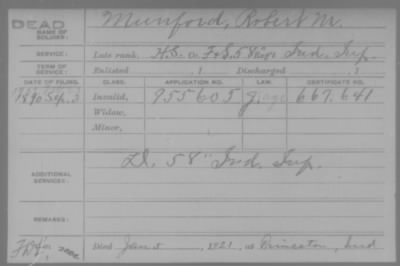 DEAD
NAME OF SOLDIER:
Munford, Robert M.
SERVICE:
Late rank, H.S. Co. F&S. 58 Regt Ind. Inf.
TERM OF SERVICE:
Enlisted , 1 Discharged , 1
DATE OF FILING. CLASS. APPLICATION NO. LAW. CERTIFICATE NO.
1890 Sep. 3 Invalid, 955605 667.641
Widow,
Minor,
ADDITIONAL SERVICES:
D. 58" Ind. Inf.
REMARKS:
Died Jan 5 , 1921, at Princeton, Ind